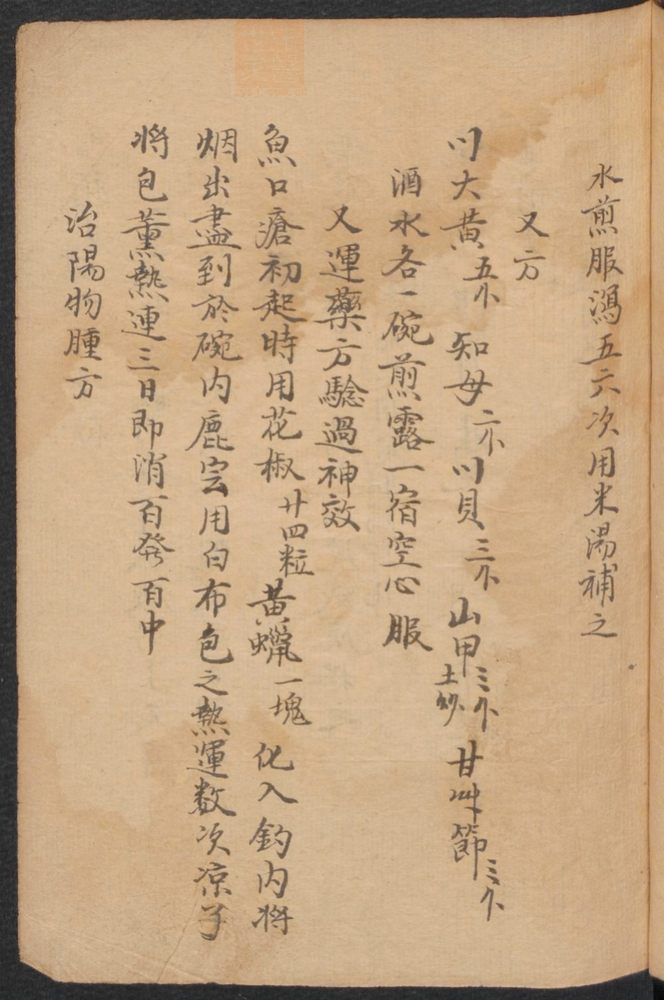 水煎服瀉五六次用米湯補之
又方
川大黃五个 知母六个 川貝三个 山甲三个土炒 甘艸節三个
酒水各一碗煎露一宿空心服
又運藥方驗過神效
魚口瘡初起時用花椒廿四粒 黃蠟一塊 化入鈞内將
烟出盡到於碗内鹿用白布包之熱運数次凉了
將包薰熱連三日即消百發百中
治陽物腫方